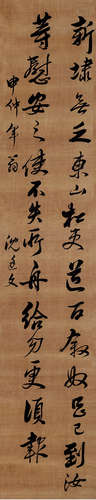 新埭無之東山松更送百叙奴已到汝
等慰安之使不失所舟給勿更須報
申仲年翁 沈廷文